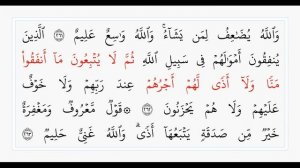 وَاللَّهُ يُضَٰعِفُ لِمَن يَشَآءُ ۗ وَاللَّهُ وَٰسِعٌ عَلِيمٌ ٢٦١ الَّذِينَ
يُنفِقُونَ أَمْوَٰلَهُمْ فِى سَبِيلِ اللَّهِ ثُمَّ لَا يُتْبِعُونَ مَآ أَنفَقُوا۟
مَنًّا وَلَآ أَذًى ۙ لَّهُمْ أَجْرُهُمْ عِندَ رَبِّهِمْ وَلَا خَوْفٌ
عَلَيْهِمْ وَلَا هُمْ يَحْزَنُونَ ٢٦٢ قَوْلٌ مَّعْرُوفٌ وَمَغْفِرَةٌ
خَيْرٌ مِّن صَدَقَةٍ يَتْبَعُهَآ أَذًى ۗ وَاللَّهُ غَنِىٌّ حَلِيمٌ ٢٦٣